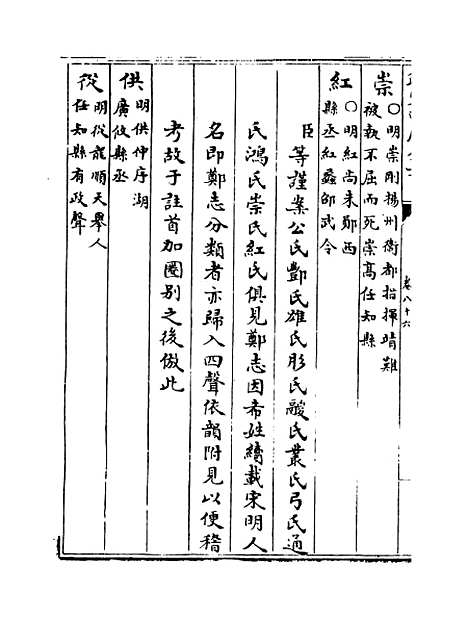 卷八十六
崇
○明崇剛揚州衛都指揮靖難
被執不屈而死崇高任知縣
紅
○明紅尚朱鄖西
縣丞紅鑫邵武令
臣等謹案公氏酆氏雄氏肜氏融氏叢氏弓氏通
氏鴻氏崇氏紅氏俱見鄭志因希姓續載宋明人
名即鄭志分類者亦歸入四聲依韻附見以便稽
考故于註首加圈別之後倣此
供
明供仲序湖
廣攸縣丞
從
明從龍順天舉人
任知縣有政聲